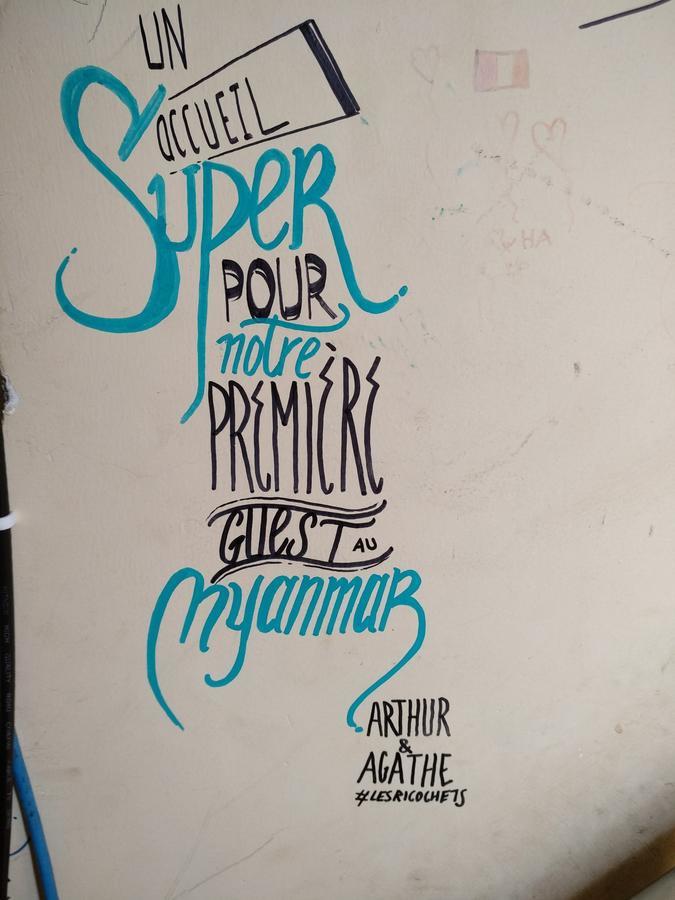 UN
ACCUEIL
SUPER
POUR
notre
PREMIÈRE
GUEST AU
Myanmar
ARTHUR
&
AGATHE
#LESRICOCHETS